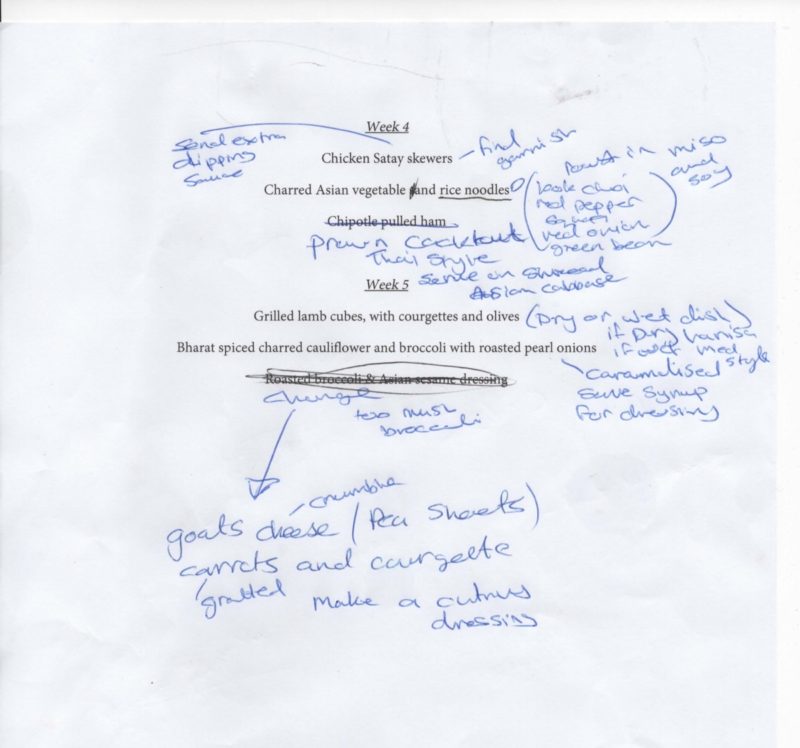 Week 4
Send extra
dipping
sauce
Chicken Satay skewers
find
garnish
Charred Asian vegetable and rice noodles
Roast in miso
and
soy
look choi
red pepper
red onion
green bean
Chipotle pulled ham
Prawn Cocktail
Thai Style
Serve on Shreaded
Asian cabbase
Week 5
Grilled lamb cubes, with courgettes and olives
(Dry or wet dish)
if Dry harrisa
if wet med
style
Bharat spiced charred cauliflower and broccoli with roasted pearl onions
caramelised
save syrup
for dressing
Roasted broccoli & Asian sesame dressing
change
too mush
broccoli
crumble
goats cheese (Pea Shoots)
carrots and courgette
gratted
make a cutrus
dressing